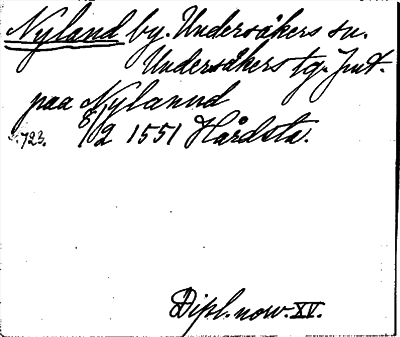 Nyland by. Undersåkers sn.
Undersåkers tg. Jmt.
paa Nylannd
s. 723. 8/2 1551 Hårdsta.
Dipl. norv. XV.